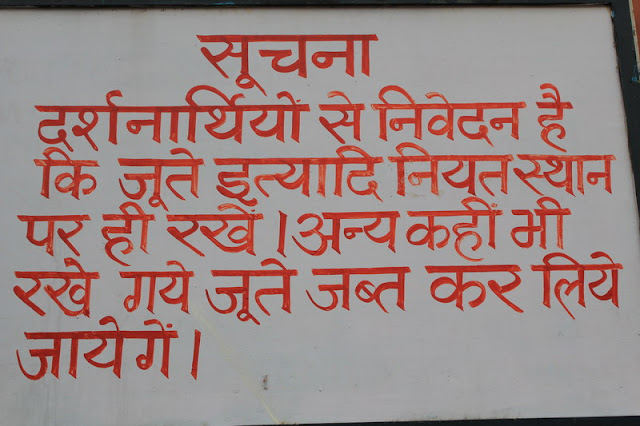 सूचना
दर्शनार्थियों से निवेदन है
कि जूते इत्यादि नियत स्थान
पर ही रखें। अन्य कहीं भी
रखे गये जूते जब्त कर लिये
जायेगें।